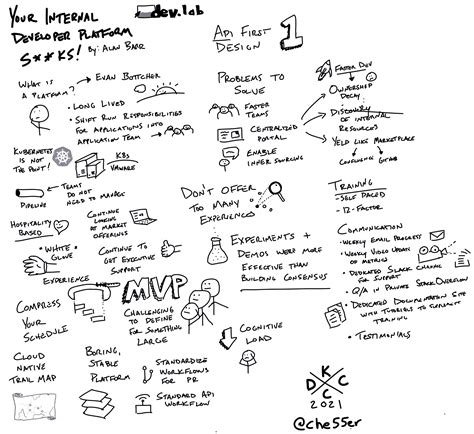 Your Internal
Developer Platform
S**KS!
By: Alan Barr
dev.lab
Api First
Design
1
What is
a Platform?
Evan Bottcher
• Long Lived
• Shift Run Responsibilities
for Applications into
Application Team
Kubernetes
is not
the point!
K8s
VMware
Pipeline
Teams
Do not
need to manage
Hospitality
Based
• White
Glove
Experience
Continue
Looking
at market
offerings
Continue to
get Executive
Support
Compress
Your
Schedule
MVP
Challenging
to Define
for something
Large
Cloud
Native
Trail Map
Boring,
Stable
Platform
Standardize
Workflows
for PR
Standard Api
Workflow
Problems to
Solve
Faster
Teams
Centralized
Portal
Enable
Inner Sourcing
Faster Dev
Ownership
Decay
Discovery
of Internal
Resources
Yelp like Marketplace
Don't Offer
Too Many
Experiences
Experiments +
Demos were more
effective than
building consensus
Cognitive
Load
Training
- Self Paced
- 12-Factor
Communication
- Weekly Email Process
- Weekly Video Update
of metrics
• Dedicated Slack Channel
for Support
• Q/A in Private Stack Overflow
• Dedicated Documentation Site
with Tutorials to
Training
• Testimonials
K
D C
C
2021
@che55er